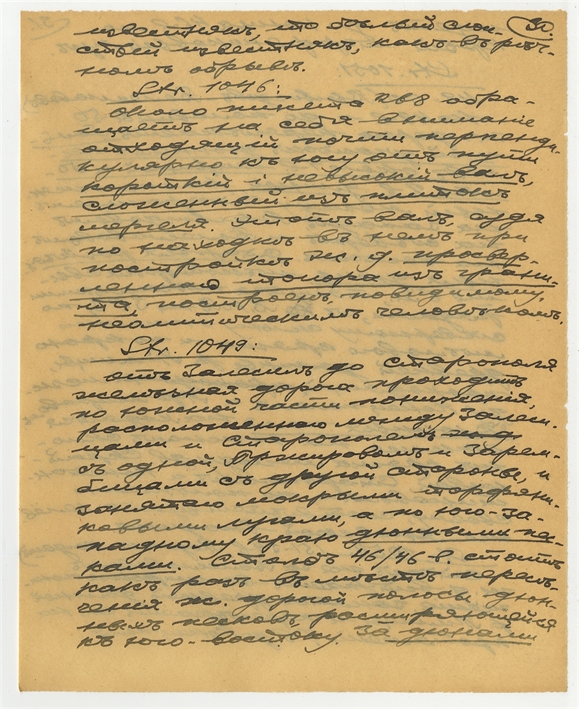 31.
известнякъ, что бѣлый слои-
стый известнякъ, какъ въ рѣч-
номъ обрывѣ.
Str. 1046:
Около пикета 268 обра-
щаетъ на себя вниманіе
отходящій почти перпенди-
кулярно къ югу отъ пути
короткій і невысокій валъ,
сложенный изъ плитокъ
мергеля. Этотъ валъ судя
по находкѣ въ немъ при
постройкѣ ж. д. просвер-
леннаго топора изъ грани-
та, построенъ, повидимому,
неолитическимъ человѣкомъ.
Str. 1049:
Отъ Залесицъ до Старополя
желѣзная дорога проходитъ
по южной части пониженія
расположеннаго между Залеси-
цами и Старополемъ
съ одной, Пржировомъ и Зарем-
бицами съ другой стороны, и
занятаго мокрыми торфяни-
ковыми лугами, а по юго-за-
падному краю дюнными пе-
сками. Столбъ 46/46 в. стоитъ
какъ разъ въ мѣстѣ пересѣ-
ченія ж. дорогой полосы дюн-
ныхъ песковъ, расширяющейся
къ юго-востоку. За дюнами